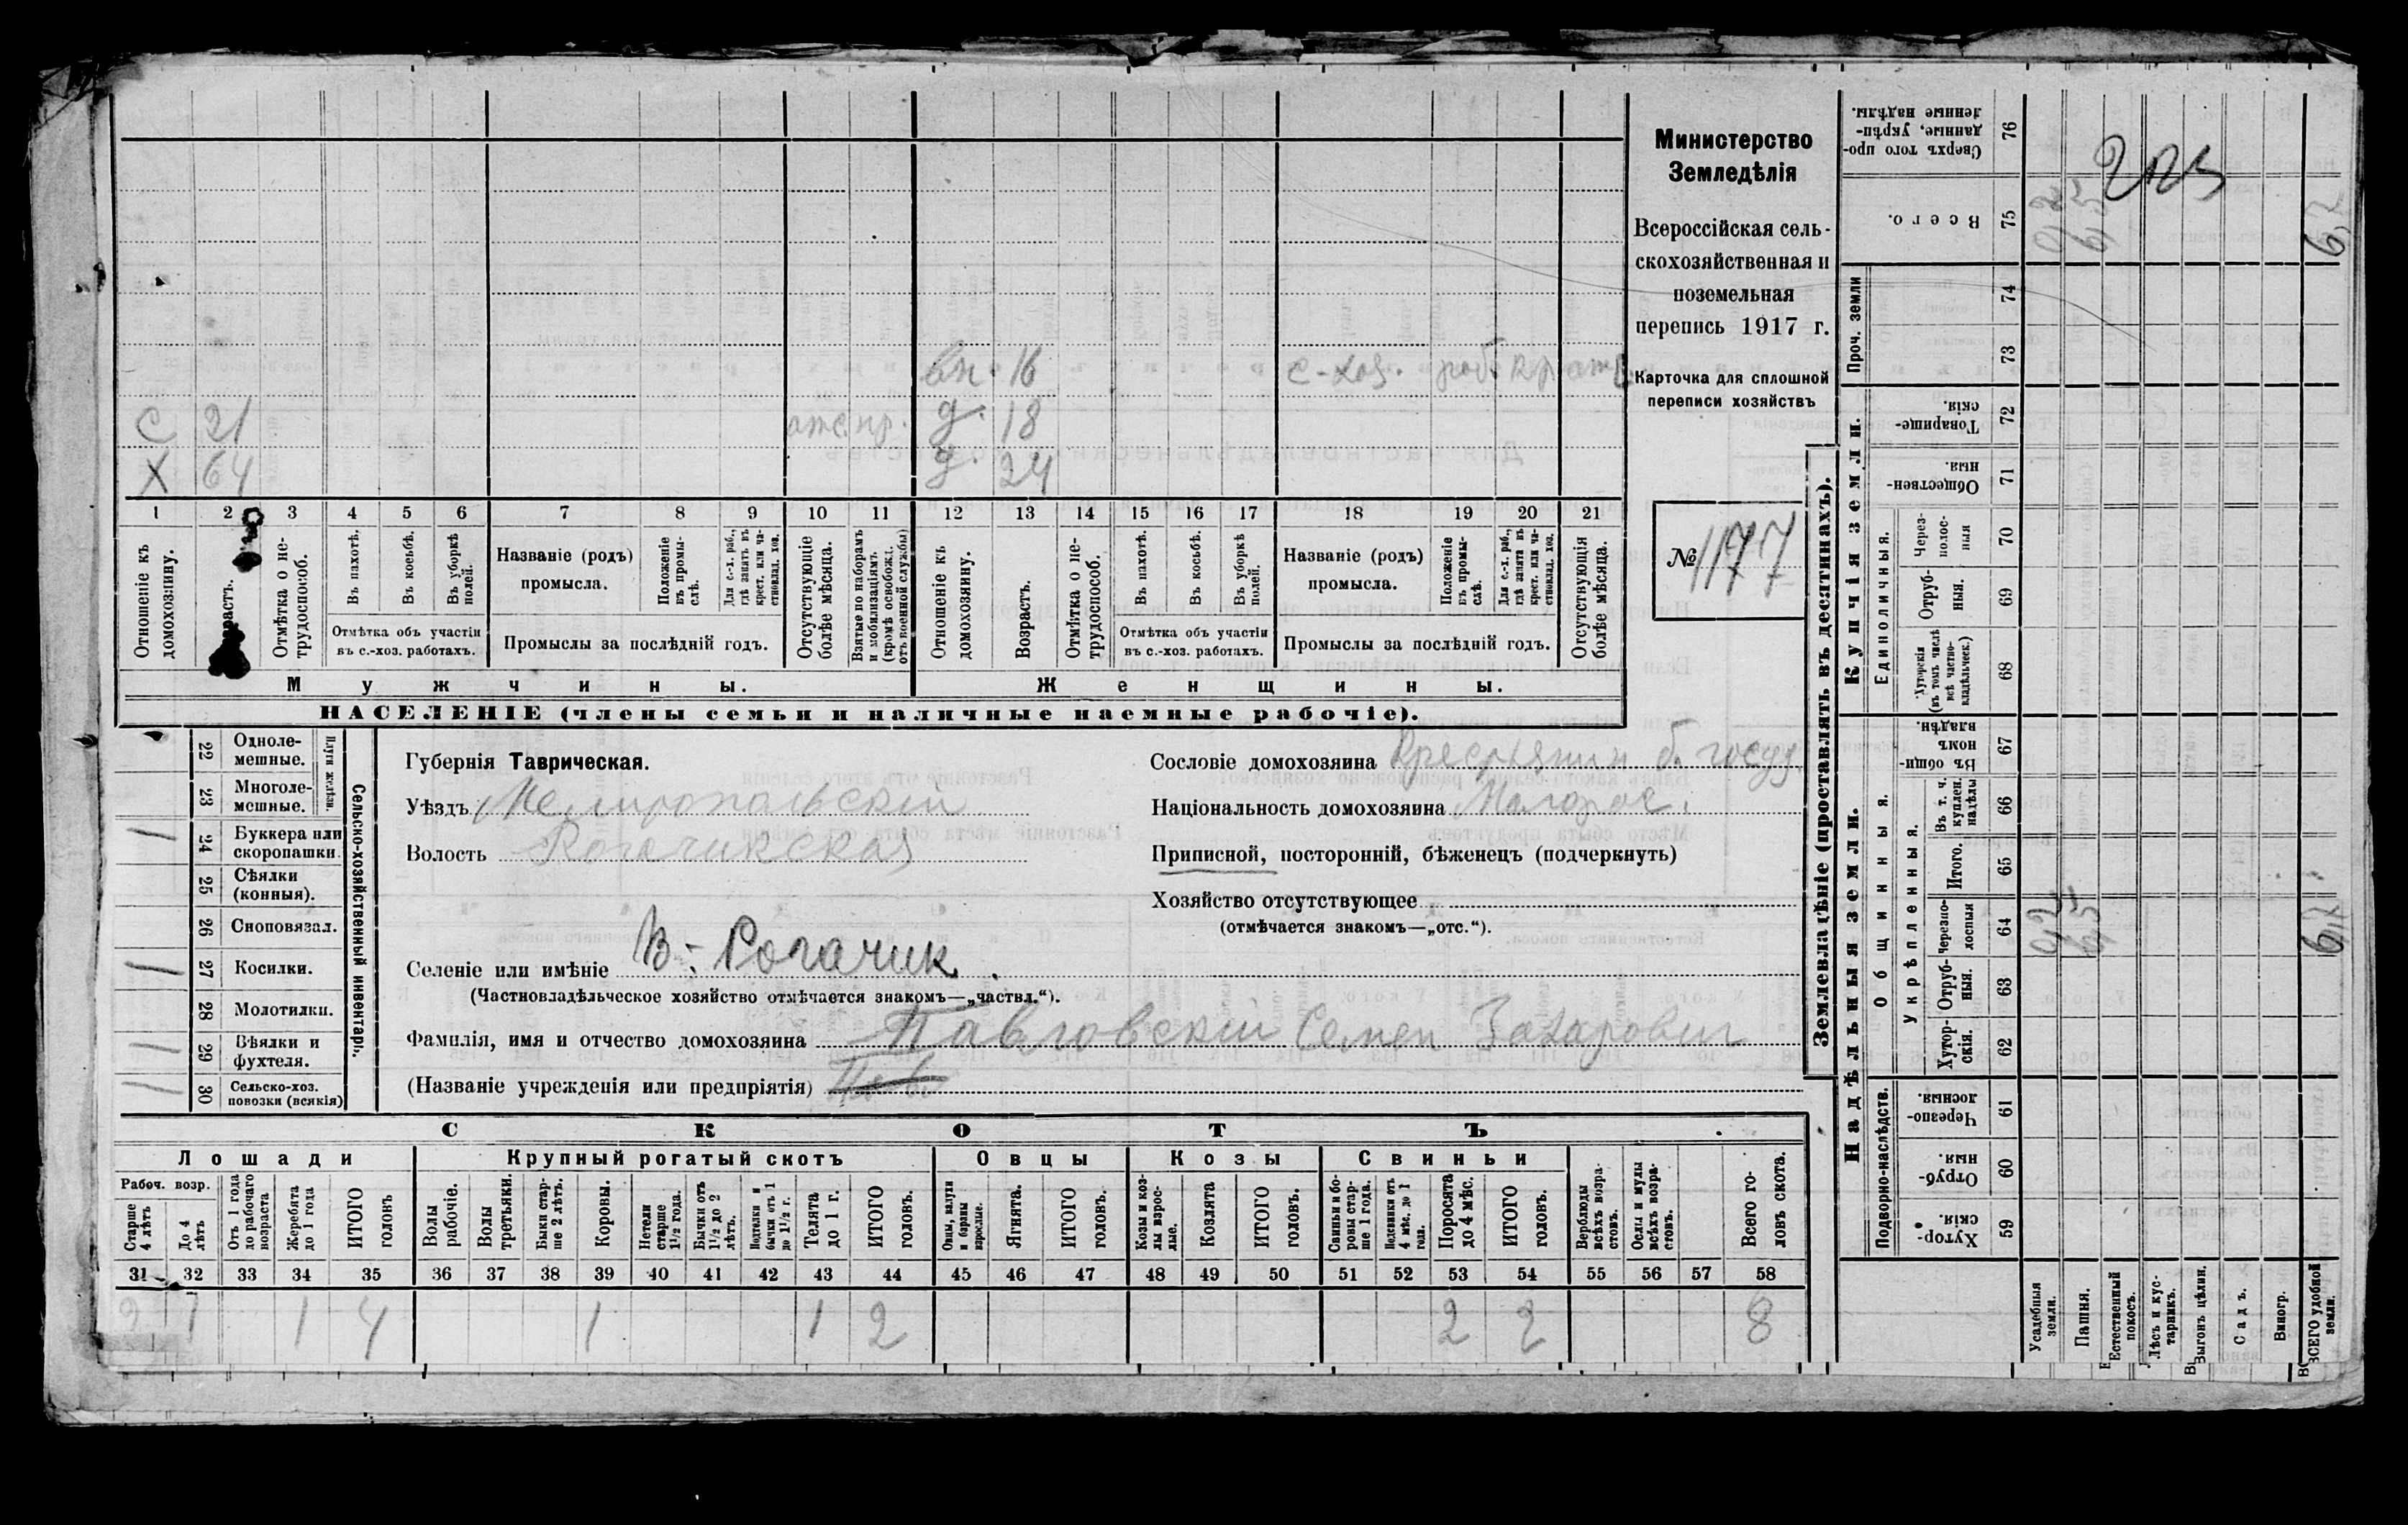 вн. 16 с-хоз. раб.
С 21 отс. д. 18
Х 64 д. 24
1 2 3 4 5 6 7 8 9 10 11 12 13 14 15 16 17 18 19 20 21
Отношеніе къ домохозяину.
Отмѣтка о не-трудоспособ.
Въ пахотѣ.
Въ косьбѣ.
Въ уборкѣ полей.
Отмѣтка объ участіи
въ с.-хоз. работахъ.
Названіе (родъ)
промысла.
Положеніе въ промы-слѣ.
Для с.-х. раб., гдѣ занятъ въ крест. или ча-стновлад. хоз.
Промыслы за послѣдній годъ.
Отсутствующіе болѣе мѣсяца.
Взятые по наборамъ и мобилизаціямъ (кромѣ освобожд. отъ военной службы)
Отношеніе къ домохозяину.
Возрастъ.
Отмѣтка о не-трудоспособ.
Въ пахотѣ.
Въ косьбѣ.
Въ уборкѣ полей.
Отмѣтка объ участіи
въ с.-хоз. работахъ.
Названіе (родъ)
промысла.
Положеніе въ промы-слѣ.
Для с.-х. раб., гдѣ занята въ крест. или ча-стновлад. хоз.
Промыслы за послѣдній годъ.
Отсутствующія болѣе мѣсяца.
Мужчины. Женщины.
НАСЕЛЕНІЕ (члены семьи и наличные наемные рабочіе).
Министерство
Земледѣлія
Всероссійская сель-
скохозяйственная и
поземельная
перепись 1917 г.
Карточка для сплошной
переписи хозяйствъ
№ 1177
Сельско-хозяйственный инвентарь.
Плуги желѣзн.
22 Одноле-мешные.
23 Многоле-мешные.
1 24 Буккера или скоропашки.
25 Сѣялки (конныя).
26 Сноповязал.
1 27 Косилки.
28 Молотилки.
1 29 Вѣялки и фухтеля.
1 30 Сельско-хоз. повозки (всякія)
Губернія Таврическая.
Уѣздъ Мелитопольскій
Волость Рогачикская
Селеніе или имѣніе В.-Рогачик.
(Частновладѣльческое хозяйство отмѣчается знакомъ—„частвл.“).
Фамилія, имя и отчество домохозяина Павловскій Семен Захарович
(Названіе учрежденія или предпріятія)
Сословіе домохозяина Крестьянин б. госуд.
Національность домохозяина Малорос.
Приписной, посторонній, бѣженецъ (подчеркнуть)
Хозяйство отсутствующее
(отмѣчается знакомъ—„отс.“).
СКОТЪ
Лошади Крупный рогатый скотъ Овцы Козы Свиньи
Рабоч. возр.
Старше 4 лѣтъ
До 4 лѣтъ
Отъ 1 года до рабочаго возраста
Жеребята до 1 года
ИТОГО головъ
Волы рабочіе.
Волы третьяки.
Быки стар-ше 2 лѣтъ.
Коровы.
Нетели старше 1½ года.
Бычки отъ 1½ до 2 лѣтъ.
Подтелки и бычки отъ 1 до 1½ г.
Телята до 1 г.
ИТОГО головъ.
Овцы, валухи и бараны взрослые.
Ягнята.
ИТОГО головъ.
Козы и коз-лы взрос-лые.
Козлята
ИТОГО головъ.
Свиньи и бо-ровы стар-ше 1 года.
Подсвинки отъ 4 мѣс. до 1 года.
Поросята до 4 мѣс.
ИТОГО головъ.
Верблюды всѣхъ возра-стовъ.
Ослы и мулы всѣхъ возра-стовъ.
Всего го-ловъ скота.
31 32 33 34 35 36 37 38 39 40 41 42 43 44 45 46 47 48 49 50 51 52 53 54 55 56 57 58
2 1 1 4 1 1 2 2 2 8
Землевладѣніе (проставлять въ десятинахъ).
Купчія земли.
Надѣльныя земли.
Сверхъ того про-данные, укрѣп-ленные надѣлы. 76
Всего. 75
Проч. земли 74 73
Товарище-скія. 72
Обществен-ныя. 71
Единоличныя.
Через-полос-ныя 70
Отруб-ныя. 69
Хуторскія (въ томъ числѣ всѣ частно-владѣльческ.) 68
Общинныя.
Въ общи-номъ владѣн. 67
Укрѣпленныя.
Въ т. ч. куплен. надѣлы 66
Итого. 65
Черезпо-лосныя 64
Отруб-ныя. 63
Хутор-скія. 62
Подворно-наслѣдств.
Черезпо-лосныя. 61
Отруб-ныя. 60
Хутор-скія. 59
Усадебныя земли.
Пашня.
Естественный покосъ.
Лѣсъ и кус-тарникъ.
Выгонъ цѣлин.
Садъ.
Виногр.
ВСЕГО удобной земли.